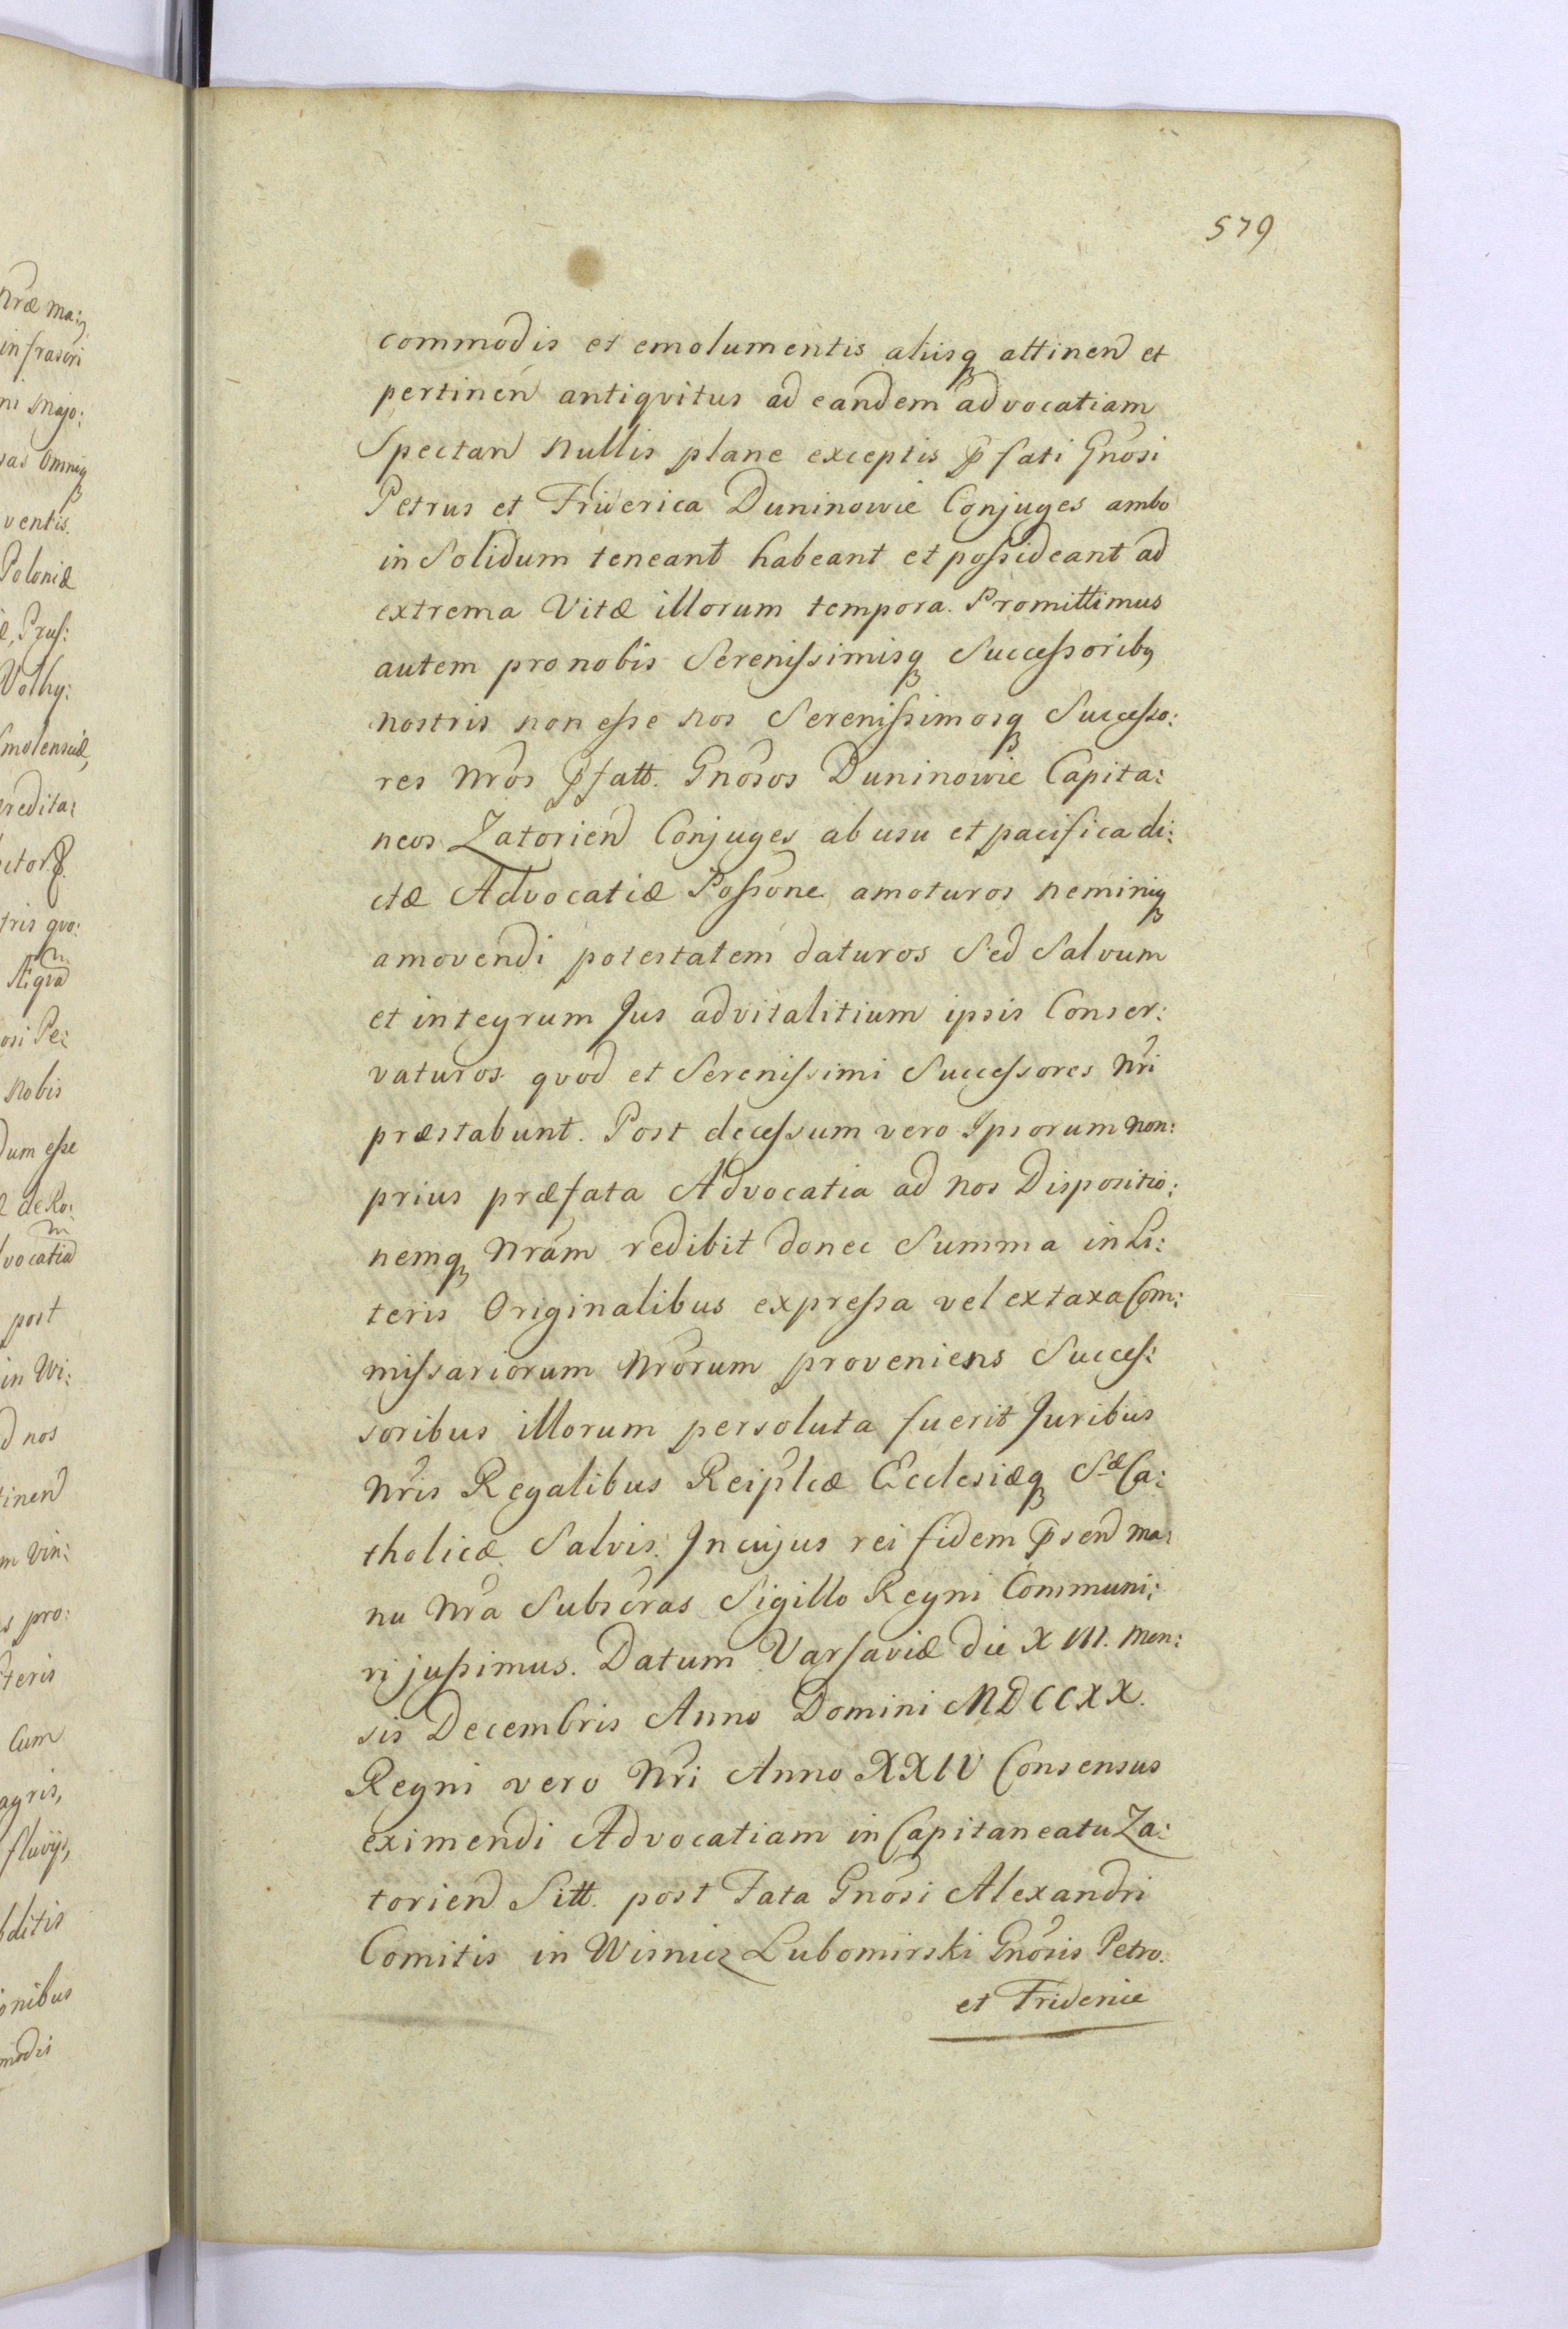 579
commodis et emolumentis aliisq attinen et
pertinen antiqvitus ad eandem advocatiam
Spectan nullis plane exceptis p̄fati Gnosi
Petrus et Friderica Duninowie Conjuges ambo
in Solidum teneant habeant et possideant ad
extrema Vitæ illorum tempora. Promittimus
autem pro nobis Serenissimisq Successoribq
nostris non esse nos Serenissimosq Successo:
res Nros p̄fatt. Gnosos Duninowie Capita:
neos Zatorien Conjuges ab usu et pacifica di:
ctæ Advocatiæ Possone amoturos neminiq
amovendi potestatem daturos Sed Salvum
et integrum Jus advitalitium ipsis Conser:
vaturos qvod et Serenissimi Successores Nri
præstabunt. Post decessum vero Ipsorum non:
prius præfata Advocatia ad nos Dispositio:
nemq Nram redibit donec Summa in Li:
teris Originalibus expressa vel ex taxa Com:
missariorum Nrorum proveniens Succes:
soribus illorum persoluta fuerit Juribus
Nris Regalibus Reiplcæ Ecclesiæq Sæ Ca:
tholicæ Salvis. In cujus rei fidem p̄sen ma:
nu Nra Subscras Sigillo Regni Communi:
ri jussimus. Datum Varsaviæ die XVII. Men:
sis Decembris Anno Domini MDCCXX.
Regni vero Nri Anno XXIV Consensus
eximendi Advocatiam in Capitaneatu Za:
torien Sitt. post Fata Gnosi Alexandri
Comitis in Wisnicz Lubomirski Gnosis Petro.
et Fridericæ